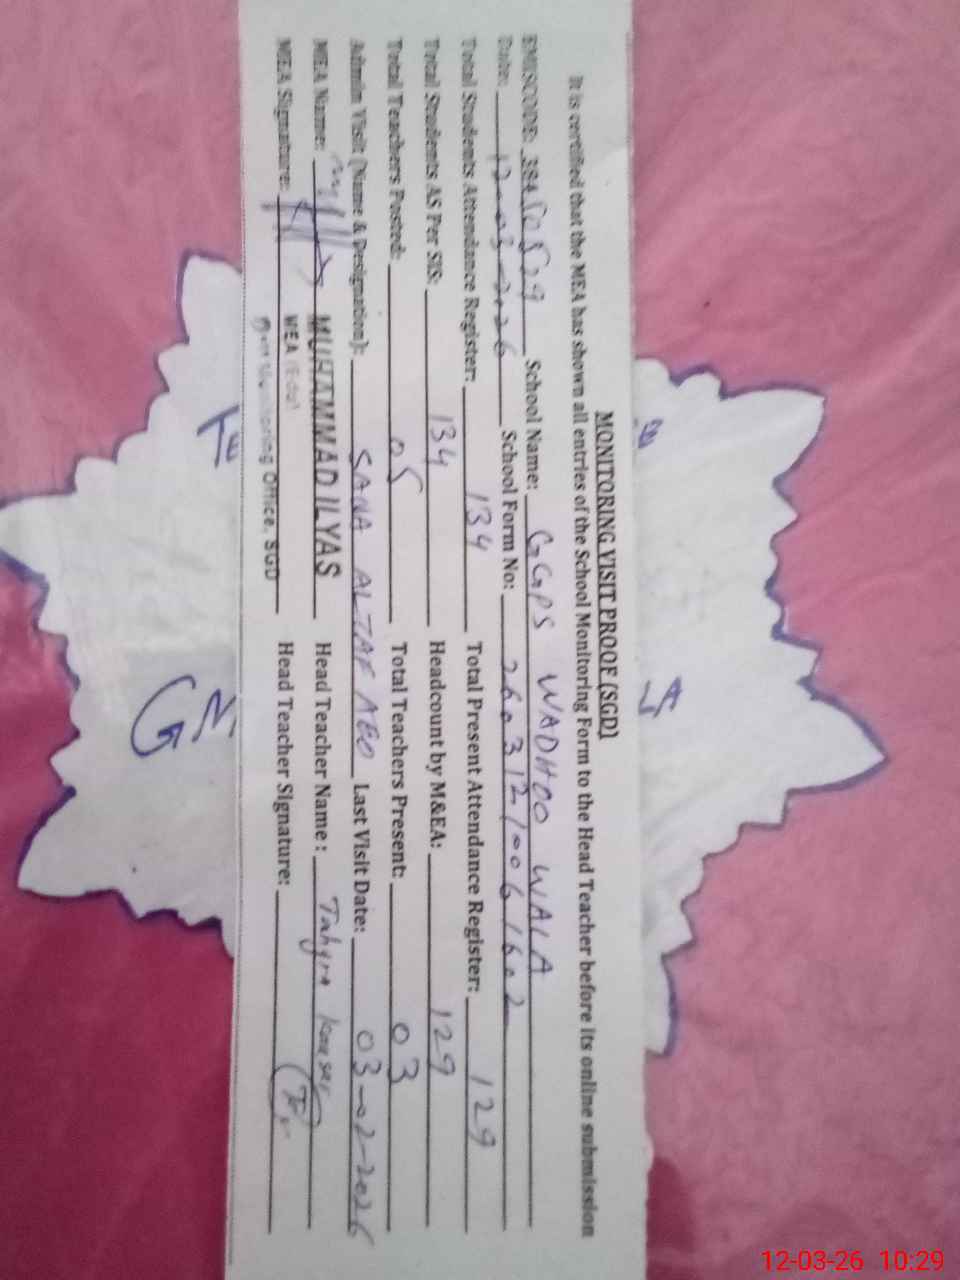 MONITORING VISIT PROOF (SGD)
It is certified that the MEA has shown all entries of the School Monitoring Form to the Head Teacher before its online submission
EMISCODE: 38450529 School Name: GGPS WADHOO WALA
Date: 12-03-2026 School Form No: 26031210061602
Total Students Attendance Register: 134 Total Present Attendance Register: 129
Total Students AS Per SIS: 134 Headcount by M&EA: 129
Total Teachers Posted: 05 Total Teachers Present: 03
Admin Visit (Name & Designation): SANA ALTAF AEO Last Visit Date: 03-02-2026
MEA Name: MUHAMMAD ILYAS Head Teacher Name: Tahyra Kousar
MEA Signature: MEA Head Teacher Signature:
Monitoring Office, SGD
12-03-26 10:29